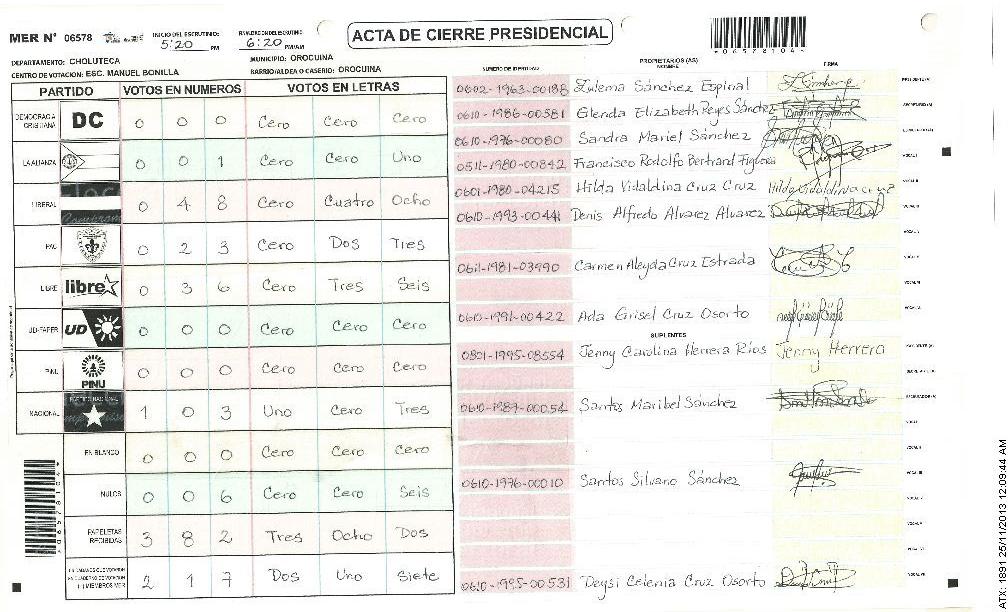 MER N° 06578
INICIO DEL ESCRUTINIO: 5:20 PM
6:20 PM/AM
ACTA DE CIERRE PRESIDENCIAL
06578104
DEPARTAMENTO: CHOLUTECA
MUNICIPIO: OROCUINA
CENTRO DE VOTACION: ESC. MANUEL BONILLA
BARRIO/ALDEA O CASERIO: OROCUINA
PARTIDO VOTOS EN NUMEROS VOTOS EN LETRAS
DEMOCRACIA CRISTIANA DC 0 0 0 Cero Cero Cero
LA ALIANZA 0 0 1 Cero Cero Uno
LIBERAL 0 4 8 Cero Cuatro Ocho
PAC 0 2 3 Cero Dos Tres
LIBRE libre 0 3 6 Cero Tres Seis
UD-FAPER UD 0 0 0 Cero Cero Cero
PINU PINU 0 0 0 Cero Cero Cero
NACIONAL PARTIDO NACIONAL 1 0 3 Uno Cero Tres
EN BLANCO 0 0 0 Cero Cero Cero
NULOS 0 0 6 Cero Cero Seis
PAPELETAS RECIBIDAS 3 8 2 Tres Ocho Dos
2 1 7 Dos Uno Siete
NUMERO DE IDENTIDAD PROPIETARIOS (AS) NOMBRE FIRMA
0602-1963-00188 Zulema Sánchez Espinal
0610-1986-00581 Glenda Elizabeth Reyes Sánchez
0610-1976-00080 Sandra Mariel Sánchez
0511-1980-00842 Francisco Rodolfo Bertrand Figueroa
0601-1980-04215 Hilda Vidaldina Cruz Cruz Hilda Vidaldina Cruz
0610-1993-00441 Denis Alfredo Alvarez Alvarez
0611-1981-03990 Carmen Aleyda Cruz Estrada
0610-1991-00422 Ada Grisel Cruz Osorto
SUPLENTES
0801-1995-08554 Jenny Carolina Herrera Rios Jenny Herrera
0610-1987-00054 Santos Maribel Sánchez
0610-1976-00010 Santos Silvano Sánchez
0610-1995-00531 Deysi Celenia Cruz Osorto
ATX: 1891 25/11/2013 12:09:44 AM